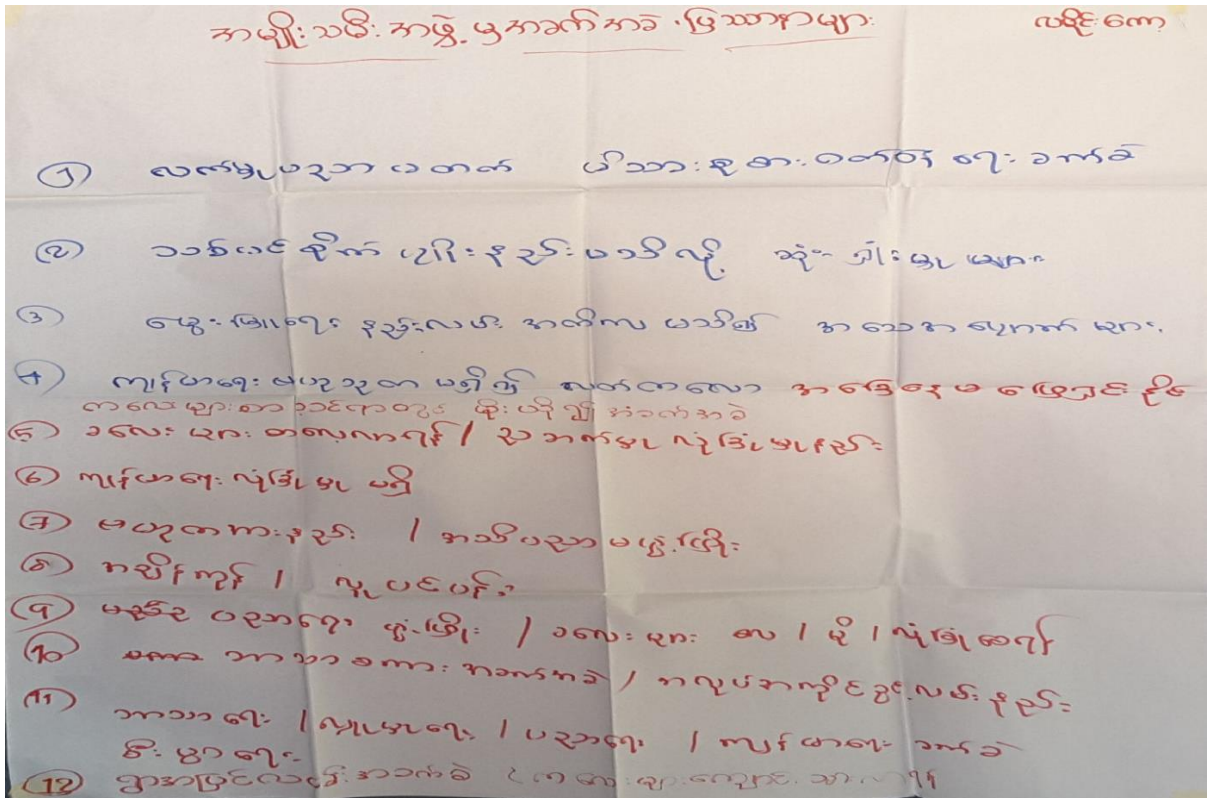 အမျိုးသမီး အဖွဲ့ မှ အခက်အခဲ ပြဿနာများ လှိုင်းကော့
① လက်မှုပညာ မတတ် မိသားစု စား ဝတ် နေ ရေး ခက်ခဲ
② သစ်ပင် စိုက် ပျိုးနည်း မသိလို့ ဆုံးရှုံးမှု များ
③ မွေးမြူရေး နည်းလမ်း အတိကျ မသိ၍ အသေအပျောက် များ
④ ကျန်းမာရေး ဗဟုသုတ မရှိ၍ လတ်တလော အခြေနေ မဖြေရှင်းနိုင်
ကလေးများစာသင်ရာတွင် မိုးပနို၍ အခက်အခဲ
⑤ ခလေးများ စာလေလာရန် / သူ့ဘက်မှု လုံခြုံမှုနည်း
⑥ ကျန်မာရေး လုံခြုံမှု မရှိ
⑦ ဗဟုတကားနည်း / အသိပညာ မဖွံ့ဖြိုး
⑧ အချိန်ကုန် / လူပင်ပန်း
⑨ ပညာရေး ဖွံ့ဖြိုး / ခလေးများ စာ / မို / လုံခြုံစေရန်
⑩ ဘာသာစကား အခက်အခဲ / အလုပ်အကိုင်ခွင့်လမ်းနည်း
⑪ ဘာသာရေး / လူမှုရေး / ပညာရေး / ကျန်မာရေး ခက်ခဲ
စီးပွာရေး
⑫ ရွာအပြင်လမ်း အခက်ခဲ (ကလေးများကျောင်းသွားလာရန်